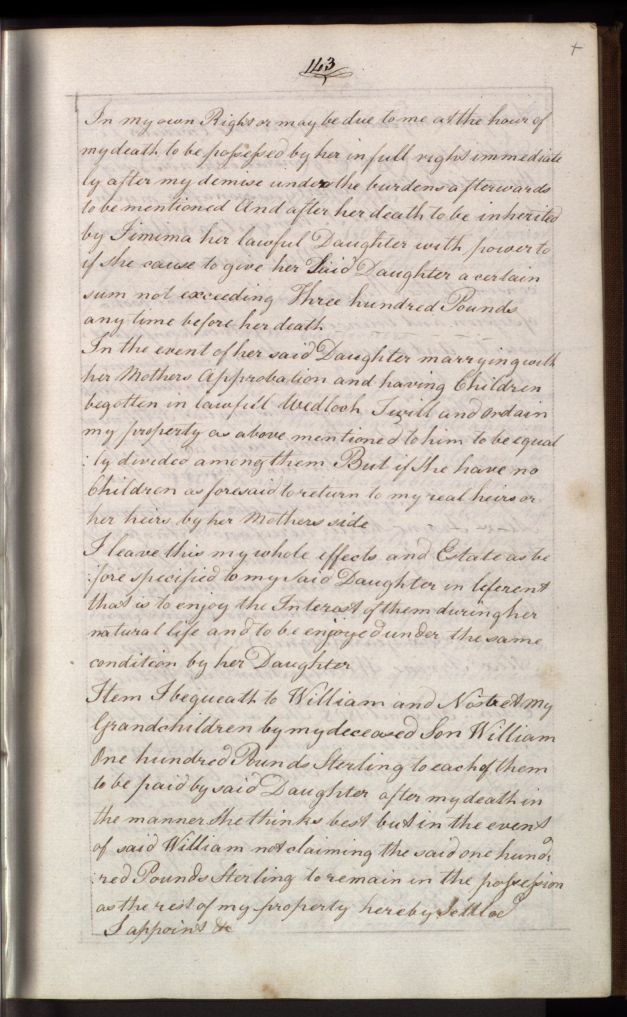 143
+
In my own Right or may be due to me at the hour of
my death to be possessed by her in full right immediate
ly after my demise under the burdens afterwards
to be mentioned And after her death to be inherited
by Jimima her lawful Daughter with power to
if she cause to give her Said Daughter a certain
sum not exceeding Three hundred Pounds
any time before her death
In the event of her said Daughter marrying with
her Mothers Approbation and having Children
begotten in lawfull Wedloch I will and ordain
my property as above mentioned to him to be equal
:ly divided among them But if she have no
Children as foresaid to return to my real heirs or
her heirs by her Mothers side
I leave this my whole effects and Estate as be
:fore specified to my said Daughter in liferent
that is to enjoy the Interest of them during her
natural life and to be enjoyed under the same
condition by her Daughter
Item I bequeath to William and my
Grandchildren by my deceased Son William
One hundred Pounds Sterling to each of them
to be paid by said Daughter after my death in
the manner she thinks best but in the event
of said William not claiming the said one hund
:red Pounds Sterling to remain in the possession
as the rest of my property hereby Settled
I appoint &c